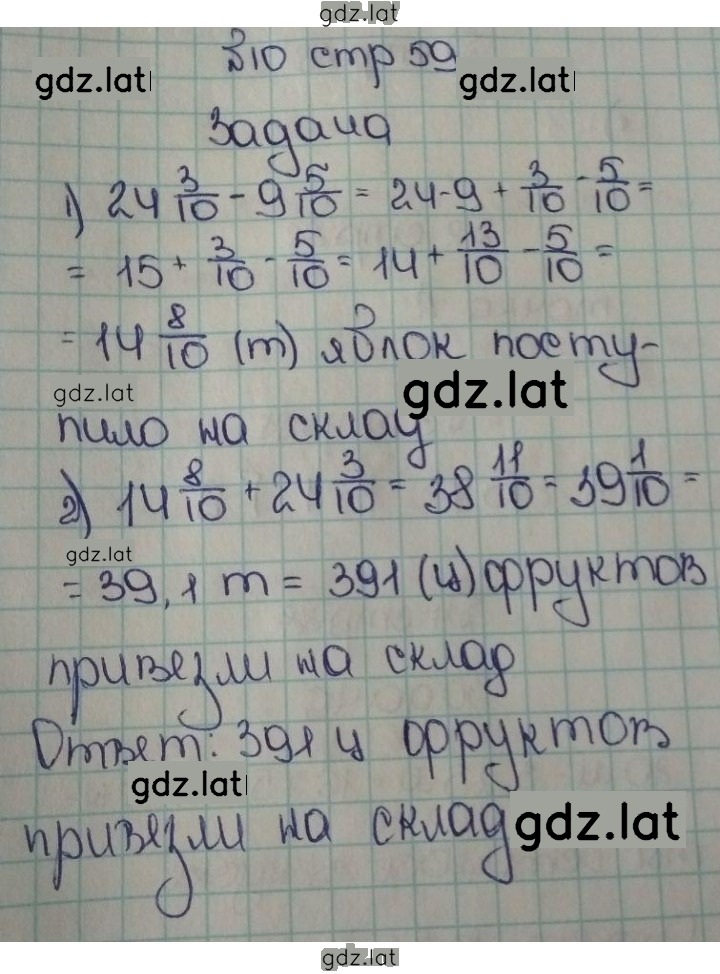 gdz.lat
№10 стр 59
gdz.lat gdz.lat
Задача
1) 24 3/10 - 9 5/10 = 24-9 + 3/10 - 5/10 =
= 15 + 3/10 - 5/10 = 14 + 13/10 - 5/10 =
= 14 8/10 (т) яблок посту-
gdz.lat gdz.lat
пило на склад
2) 14 8/10 + 24 3/10 = 38 11/10 = 39 1/10 =
gdz.lat
= 39,1 т = 391 (ц) фруктов
привезли на склад
Ответ: 391 ц фруктов
gdz.lat gdz.lat
привезли на склад
gdz.lat